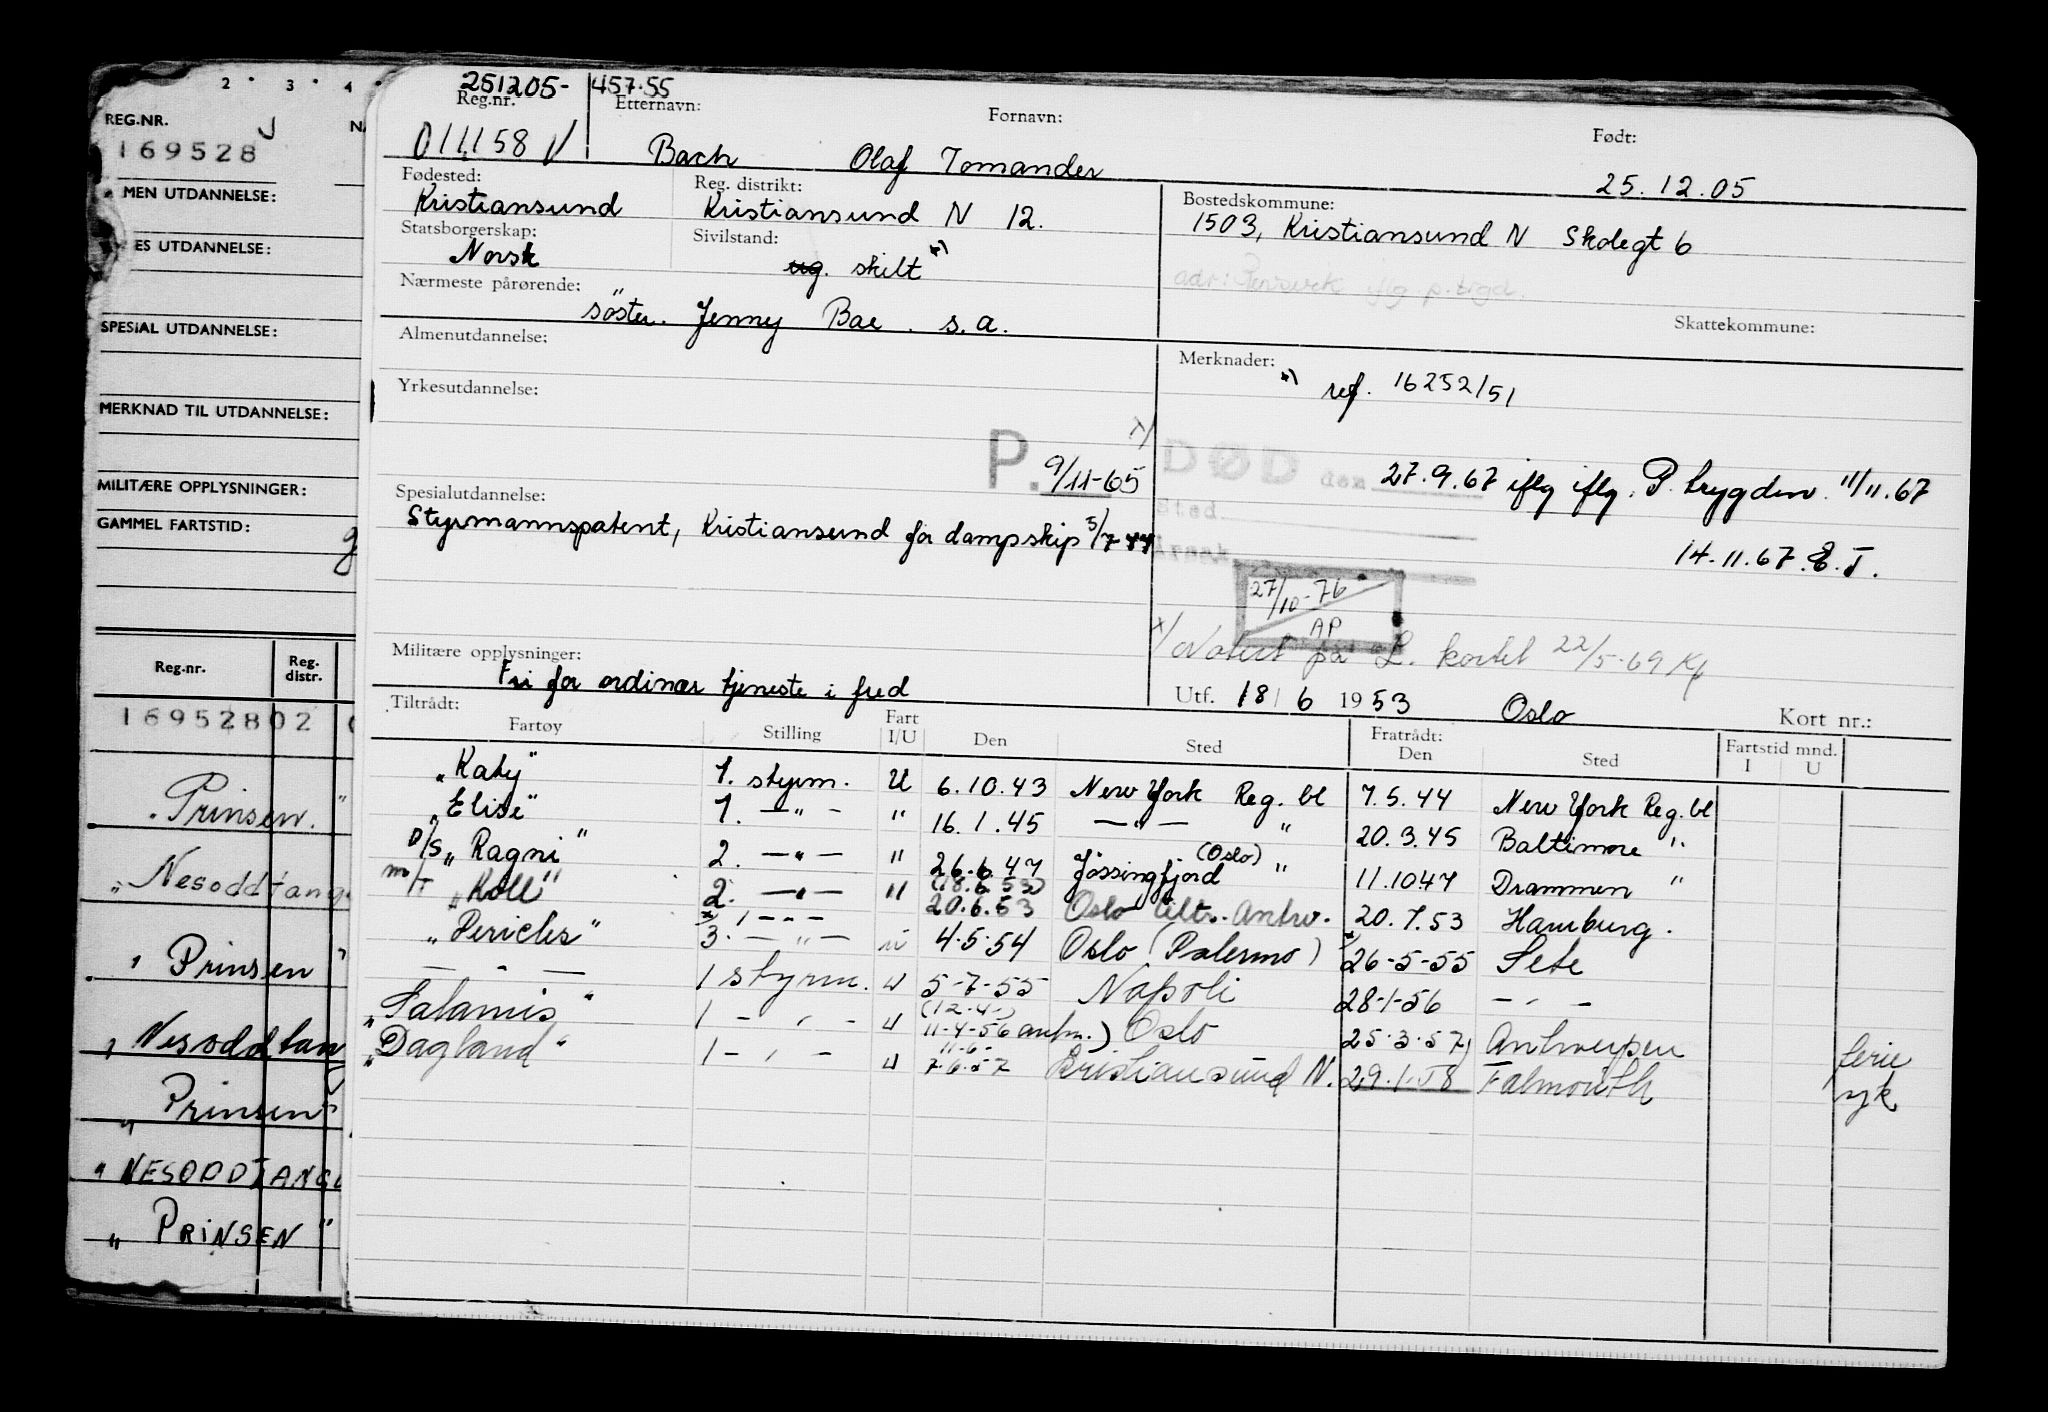 2 3 4
REG.NR.
169528
MEN UTDANNELSE:
ES UTDANNELSE:
SPESIAL UTDANNELSE:
MERKNAD TIL UTDANNELSE:
MILITÆRE OPPLYSNINGER:
GAMMEL FARTSTID:
Reg.nr. Reg. distr.
169528 02
"Prinsen"
"Nesoddtang
"Prinsen"
"Nesoddtan
"Prinsen"
"NESODDTANG
"PRINSEN"
251205- 457.55
Reg.nr. Etternavn: Fornavn: Født:
011158 Bach Olaf Tomander 25.12.05
Fødested: Reg. distrikt: Bostedskommune:
Kristiansund Kristiansund N 12. 1503, Kristiansund N Skolegt 6
Statsborgerskap: Sivilstand:
Norsk ug. skilt x)
adr: iflg. p.trgd.
Nærmeste pårørende: Skattekommune:
søster. Jenny Bae. s.a.
Almenutdannelse: Merknader:
x) ref. 16252/51
Yrkesutdannelse:
P. 9/11-65 x/
DØD den 27.9.67 iflg iflg. P. trygden. 11/11.67
Sted.
14.11.67 E.T.
Spesialutdannelse:
Styrmannspatent, Kristiansund for dampskip 5/7 44
27/10-76
AP
x/ Notert på L. kortet 22/5-69
Militære opplysninger:
Fri for ordinær tjeneste i fred
Utf. 18/6 1953 Oslo Kort nr.:
Tiltrådt: Fratrådt:
Fartøy Stilling Fart I/U Den Sted Den Sted Fartstid mnd. I U
"Katy" 1. styrm. U 6.10.43 New York Reg. bl 7.5.44 New York Reg. bl
"Elise" 1. —"— " 16.1.45 —"— " 20.3.45 Baltimore "
D/S "Ragni" 2. —"— " 26.6.47 Jøssingfjord (Oslo) " 11.1047 Drammen "
m/T "Koll" 2. —"— " (18.6.53) 20.6.53 Oslo tiltr. Antw. 20.7.53 Hamburg.
"Pericles" 3. —"— " 4.5.54 Oslo (Palermo) 26-5-55 Sete
— " — 1 styrm. U 5-7-55 Napoli 28-1-56 — " —
"Salamis" 1 — " — U (12.4.) 11-4-56 antm.) Oslo 25.3.57 Antwerpen ferie
"Dagland" 1 — " — U 11-6- 7.6.57 Kristiansund N. 29.1.58 Falmouth syk